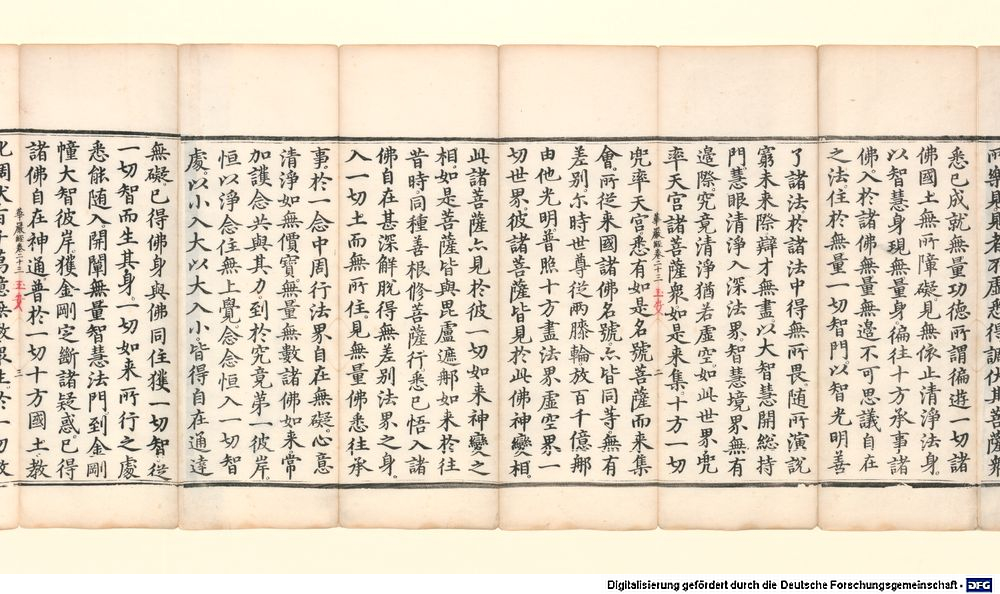 悉已成就無量功德所謂徧遊一切諸
佛國土無所障礙見無依止清淨法身
以智慧身現無量身徧往十方承事諸
佛入於諸佛無量無邊不可思議自在
之法住於無量一切智門以智光明善
了諸法於諸法中得無所畏隨所演說
窮未來際辯才無盡以大智慧開総持
門慧眼清淨入深法界智慧境界無有
邊際究竟清淨猶若虛空如此世界兜
率天宮諸菩薩衆如是來集十方一切
華嚴經卷二十三
二
兜率天宮悉有如是名號菩薩而來集
會所從來國諸佛名號亦皆同等無有
差別尒時世尊從兩膝輪放百千億𨙻
由他光明普照十方盡法界虛空界一
切世界彼諸菩薩皆見於此佛神變相
此諸菩薩亦見於彼一切如來神變之
相如是菩薩皆與毘盧遮𨙻如來於往
昔時同種善根修菩薩行悉已悟入諸
佛自在甚深解脫得無差別法界之身
入一切土而無所住見無量佛悉往承
事於一念中周行法界自在無礙心意
清淨如無價寶無量無數諸佛如來常
加護念共與其力到於究竟第一彼岸
恒以淨念住無上覺念念恒入一切智
處以小入大以大入小皆得自在通達
無礙已得佛身與佛同住獲一切智從
一切智而生其身一切如來所行之處
悉能随入開闡無量智慧法門到金剛
幢大智彼岸獲金剛定斷諸疑惑已得
諸佛自在神通普於一切十方國土教
華嚴經卷二十三
三
Digitalisierung gefördert durch die Deutsche Forschungsgemeinschaft - DFG